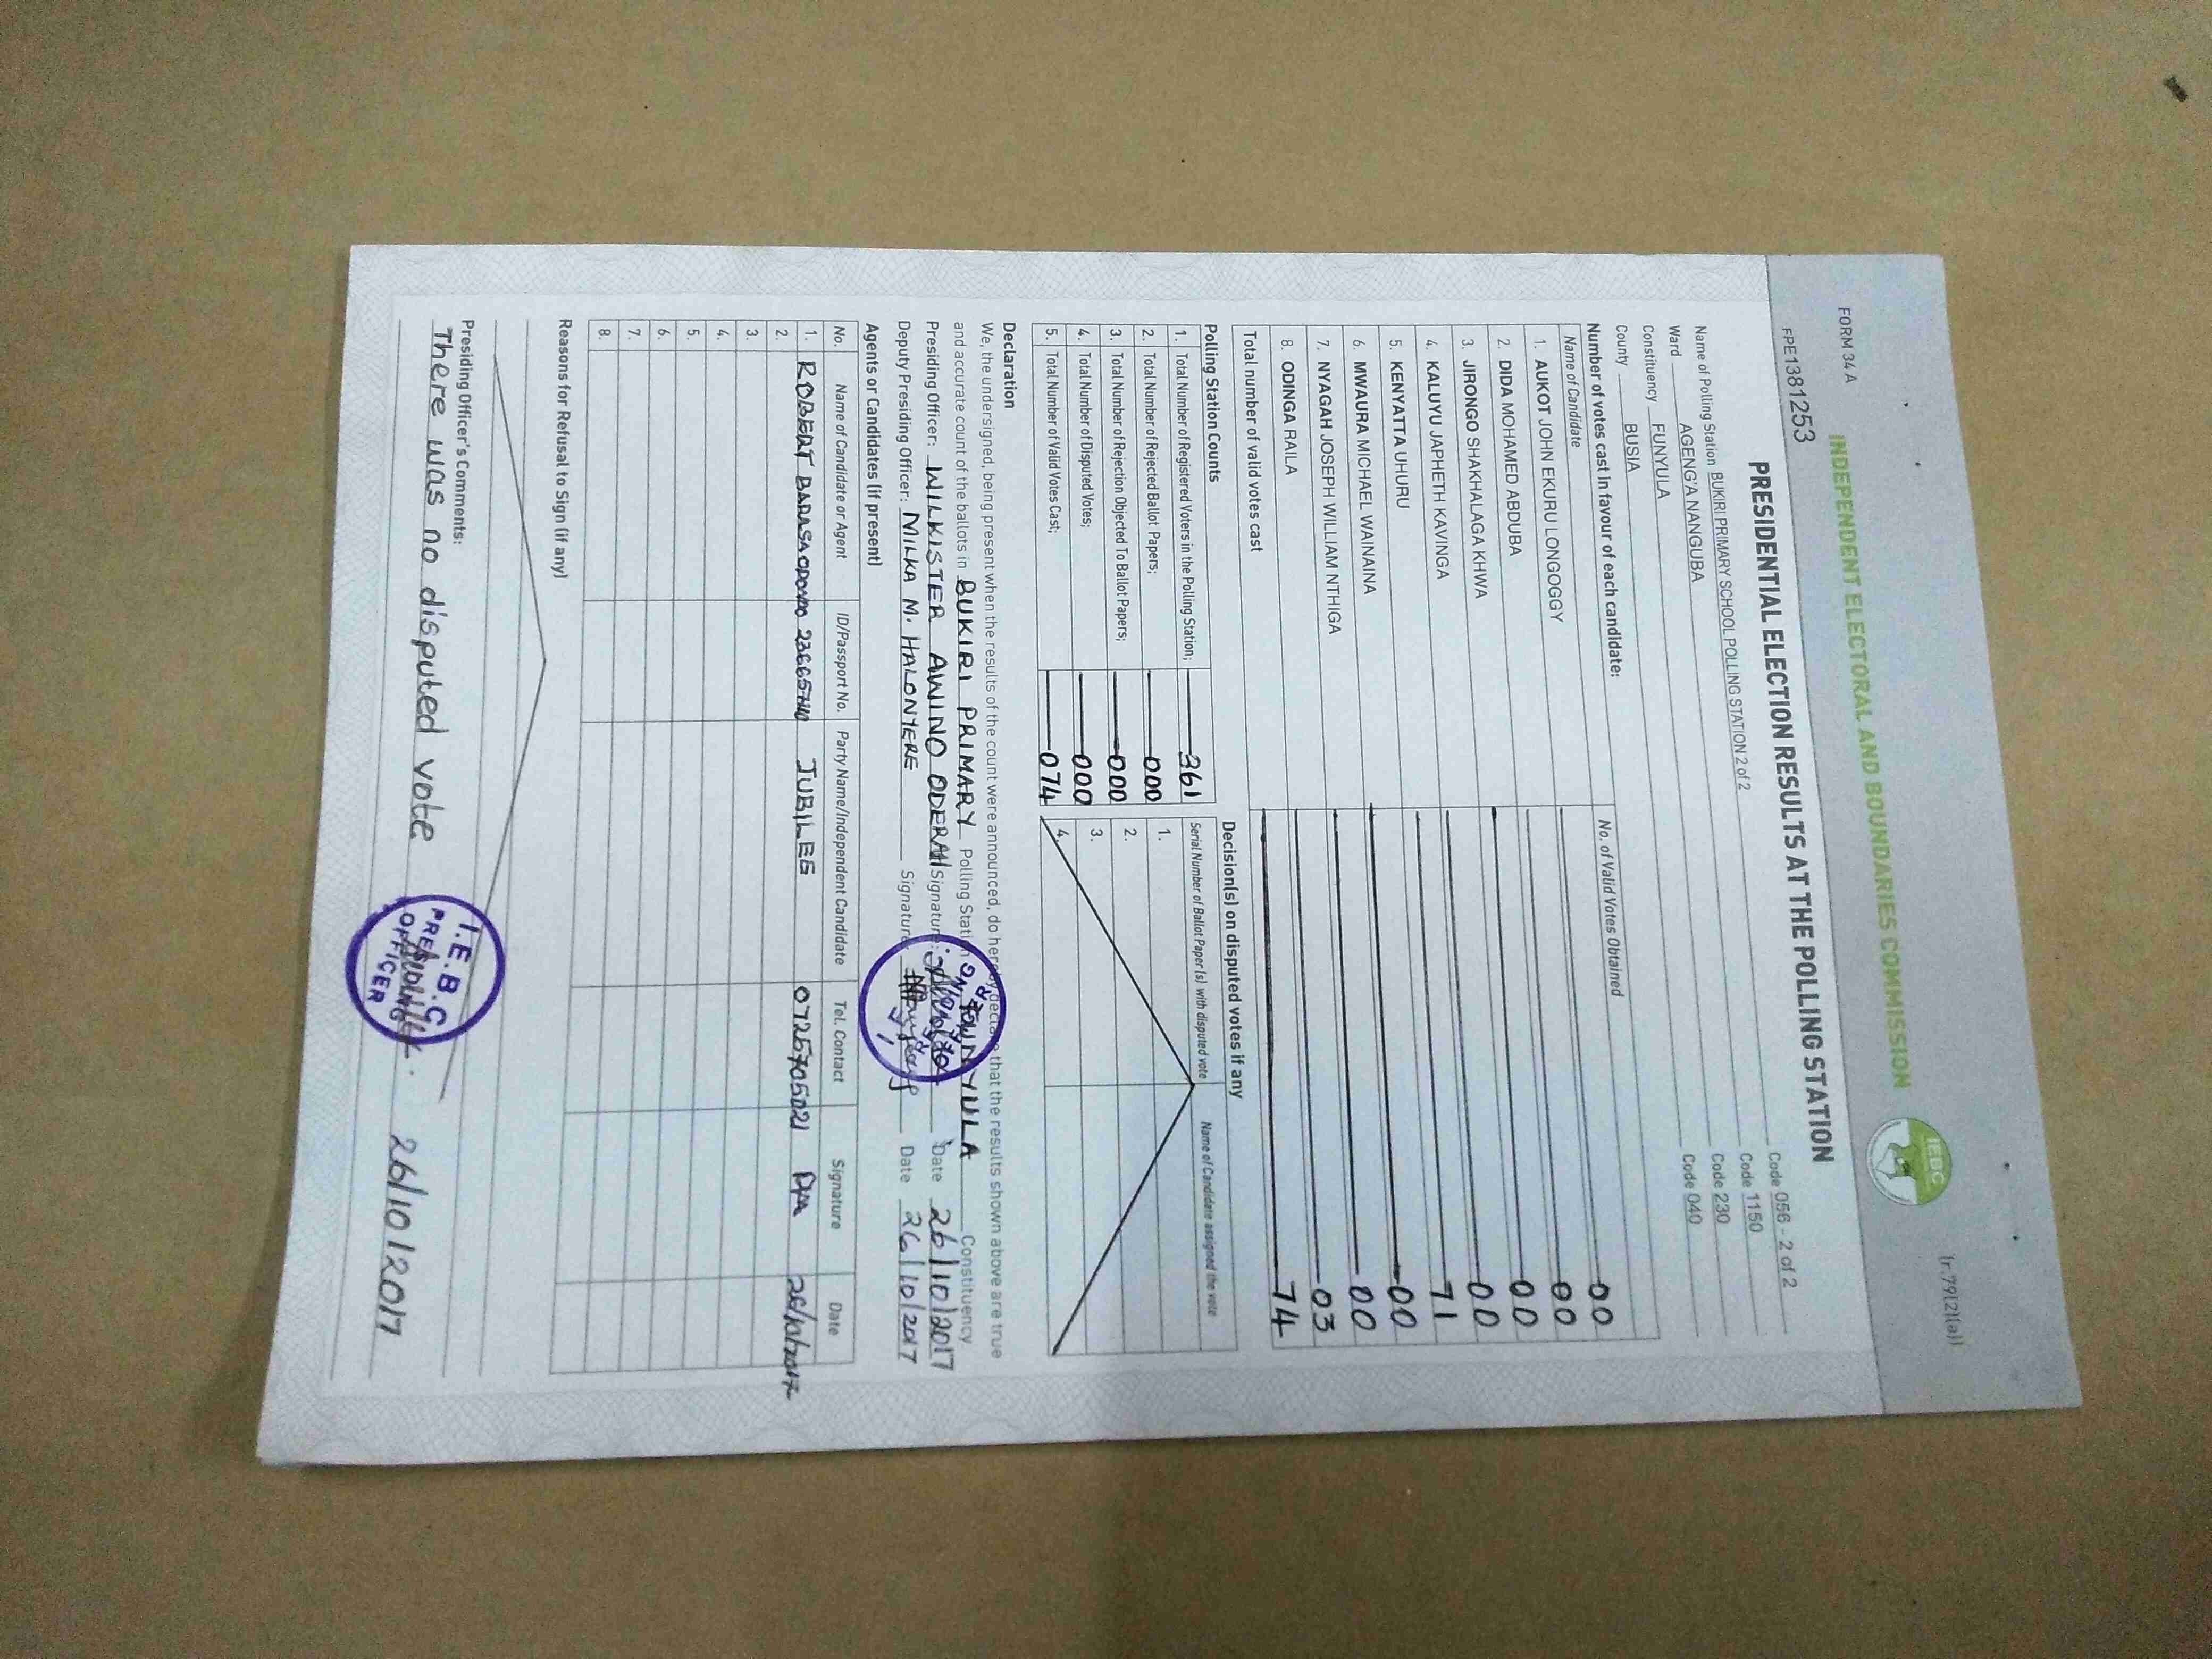 FORM 34 A
(r.79(2)(a))
INDEPENDENT ELECTORAL AND BOUNDARIES COMMISSION
IEBC
FPE1381253
PRESIDENTIAL ELECTION RESULTS AT THE POLLING STATION
Name of Polling Station BUKIRI PRIMARY SCHOOL POLLING STATION 2 of 2 Code 056 - 2 of 2
Ward AGENG'A NANGUBA Code 1150
Constituency FUNYULA Code 230
County BUSIA Code 040
Number of votes cast in favour of each candidate:
Name of Candidate No. of Valid Votes Obtained
1. AUKOT JOHN EKURU LONGOGGY 00
2. DIDA MOHAMED ABDUBA 00
3. JIRONGO SHAKHALAGA KHWA 00
4. KALUYU JAPHETH KAVINGA 00
5. KENYATTA UHURU 71
6. MWAURA MICHAEL WAINAINA 00
7. NYAGAH JOSEPH WILLIAM NTHIGA 00
8. ODINGA RAILA 03
Total number of valid votes cast 74
Polling Station Counts
1. Total Number of Registered Voters in the Polling Station; 361
2. Total Number of Rejected Ballot Papers; 000
3. Total Number of Rejection Objected To Ballot Papers; 000
4. Total Number of Disputed Votes; 000
5. Total Number of Valid Votes Cast; 074
Decision(s) on disputed votes if any
Serial Number of Ballot Paper (s) with disputed vote Name of Candidate assigned the vote
1.
2.
3.
4.
Declaration
We, the undersigned, being present when the results of the count were announced, do hereby declare that the results shown above are true
and accurate count of the ballots in BUKIRI PRIMARY Polling Station FUNYULA Constituency
Presiding Officer: WILKISTER AWINO ODERAH Signature: Date 26/10/2017
Deputy Presiding Officer: MILKA M. HALONYERE Signature Date 26/10/2017
Agents or Candidates (if present)
No. Name of Candidate or Agent ID/Passport No. Party Name/Independent Candidate Tel. Contact Signature Date
1. ROBERT BARASA 23665740 JUBILEE 0725705021 26/10/2017
2.
3.
4.
5.
6.
7.
8.
Reasons for Refusal to Sign (if any)
Presiding Officer's Comments:
There was no disputed vote
I.E.B.C
PRESIDING
OFFICER
26/10/2017